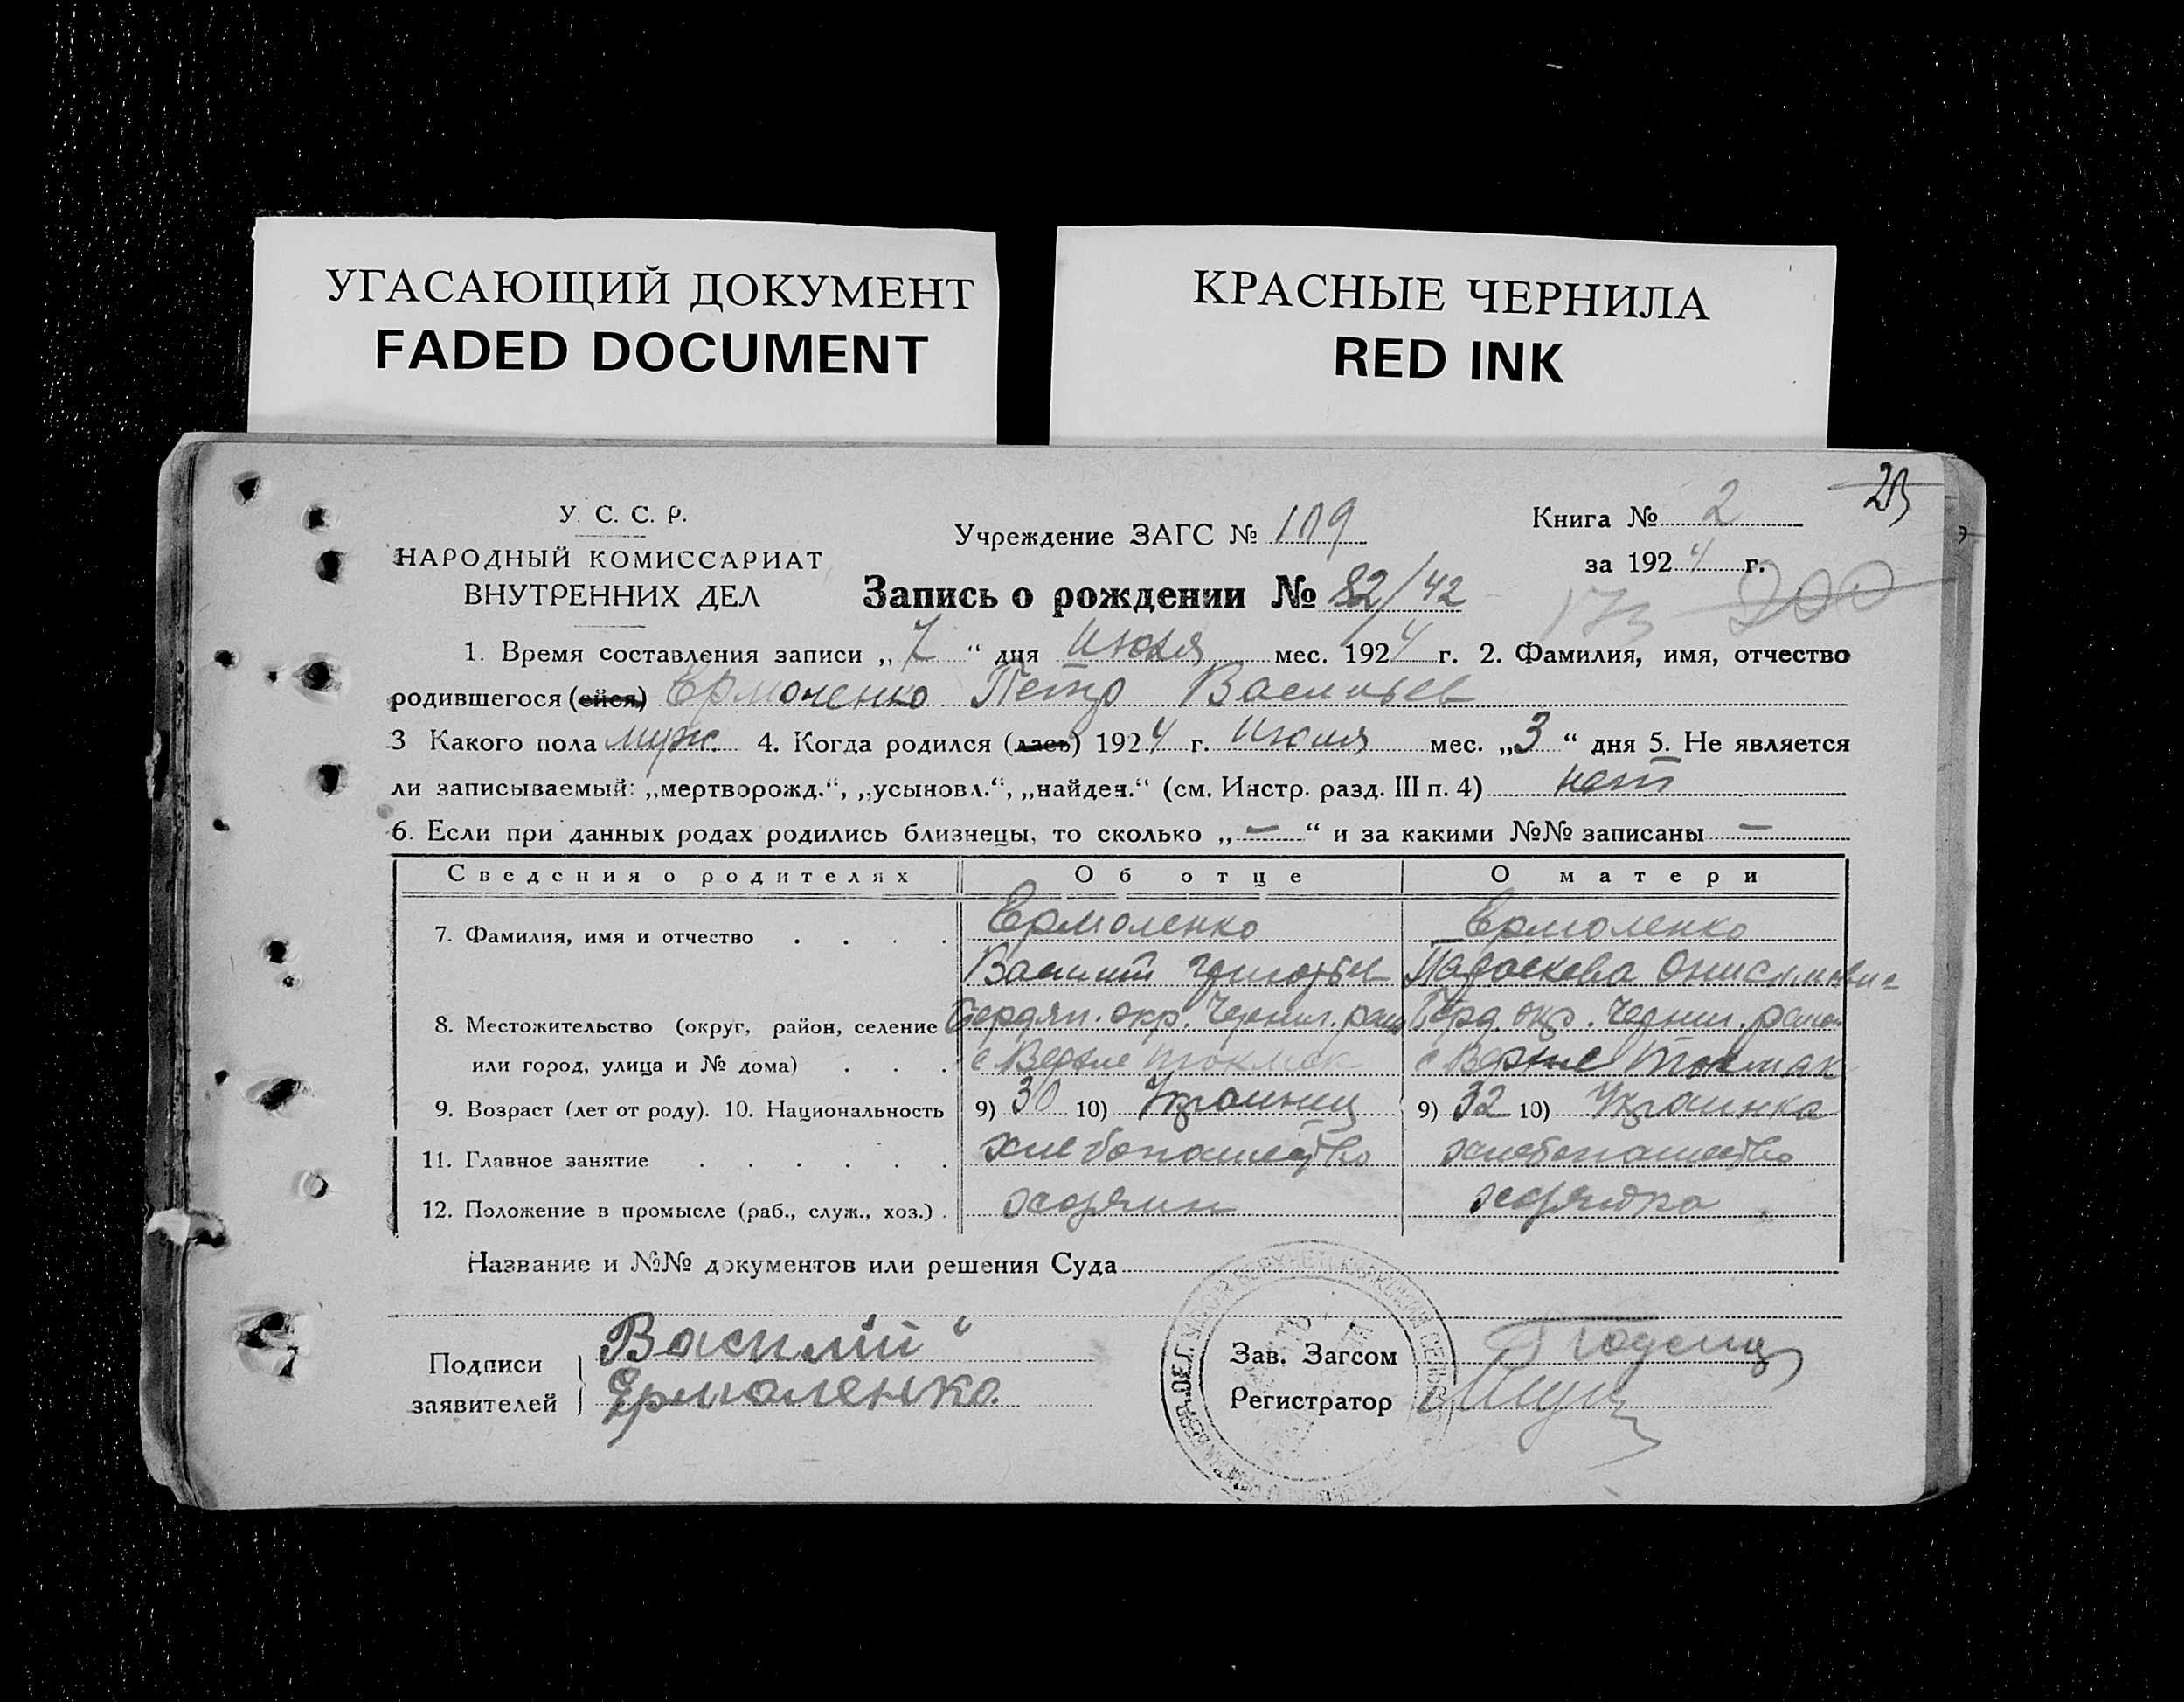 УГАСАЮЩИЙ ДОКУМЕНТ
FADED DOCUMENT
КРАСНЫЕ ЧЕРНИЛА
RED INK
23
У. С. С. Р.
НАРОДНЫЙ КОМИССАРИАТ
ВНУТРЕННИХ ДЕЛ
Учреждение ЗАГС № 109
Книга № 2
за 1924 г.
200
Запись о рождении № 82/42
1. Время составления записи „7“ дня Июля мес. 1924 г. 2. Фамилия, имя, отчество
родившегося (ейся) Ермоленко Петр Васильев
3 Какого пола муж. 4. Когда родился (лась) 1924 г. Июля мес. „3“ дня 5. Не является
ли записываемый: „мертворожд.“, „усыновл.“, „найден.“ (см. Инстр. разд. III п. 4) нет
6. Если при данных родах родились близнецы, то сколько „—“ и за какими №№ записаны —
Сведения о родителях Об отце О матери
7. Фамилия, имя и отчество Ермоленко Ермоленко
Василий Григорьев Параскева Онисимовна
8. Местожительство (округ, район, селение Бердян. окр. Черниг. район Берд. окр. Черниг. район
или город, улица и № дома) с Верхне Токмак с Верхне Токмак
9. Возраст (лет от роду). 10. Национальность 9) 30 10) Украинец 9) 32 10) Украинка
11. Главное занятие хлебопашество хлебопашество
12. Положение в промысле (раб., служ., хоз.) хозяин хозяйка
Название и №№ документов или решения Суда
Подписи заявителей
Василий
Ермоленко.
Зав. Загсом
Регистратор